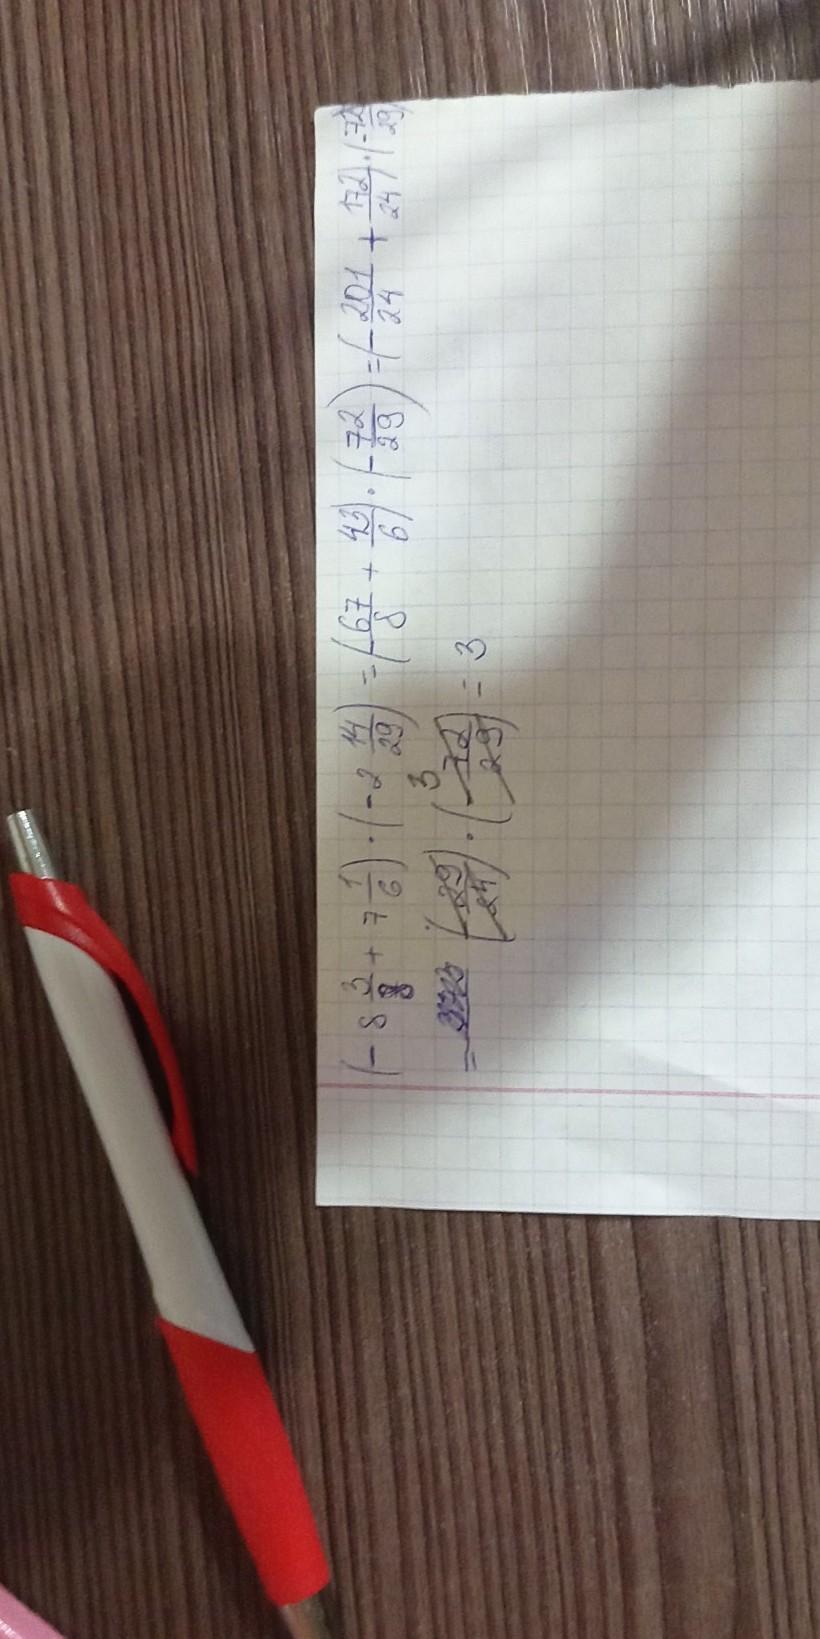 (-8 3/8 + 7 1/6) · (-2 14/29) = (-67/8 + 43/6) · (-72/29) = (-201/24 + 172/24) · (-72/29)
= (29/24) · (-72/29) 3 = 3